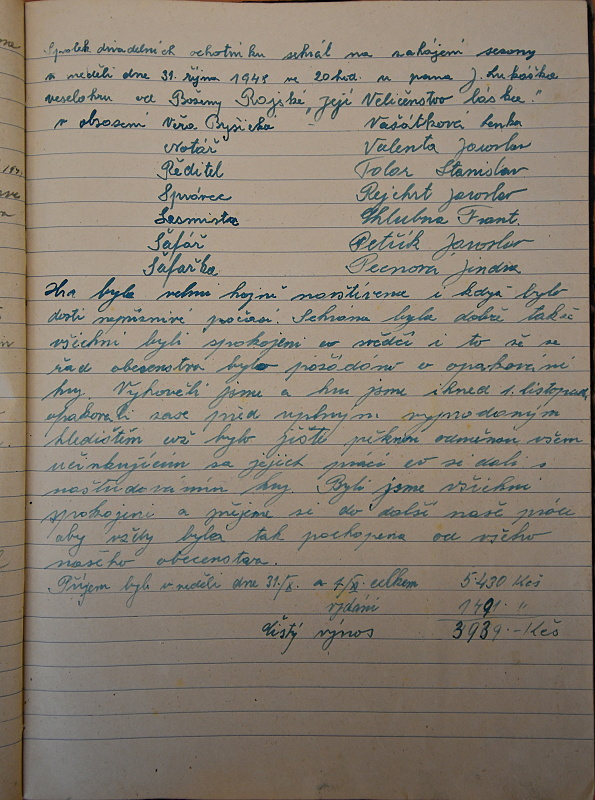 Spolek divadelních ochotníku sehrál na zahájení sesony
v neděli dne 31. října 1948 ve 20 hod. u pana J. Lukáška
veselohru od Boženy Rajské „Její Veličenstvo láska."
v obsazení Věra Vašátková Lenka
Notář Valenta Jaroslav
Ředitel Tolar Stanislav
Správce Rejchrt Jaroslav
Šafář Petřík Jaroslav
Šafařka Pecnová Jindra
Hra byla velmi hojně navštívena i když bylo
dosti nepříznivé počasí. Sehrana byla dobře takže
všichni byli spokojeni co diváci i to že se
řad obecenstva bylo požádáno o opakování
hry. Vyhověli jsme a hru jsme ihned 1. listopadu
opakovali zase před úplným vyprodaným
hledištěm což bylo jistě pěknou odměnou všem
učinkujícím za jejich práci co si dali s
naštudováním hry. Byli jsme všichni
spokojeni a přejeme si do další naší práce
aby vždy byla tak pochopena od všeho
našeho obecenstva.
Příjem byl v neděli dne 31./X. a celkem 5.430 Kčs
vydání 1491.- "
čistý výnos 3939.- Kčs